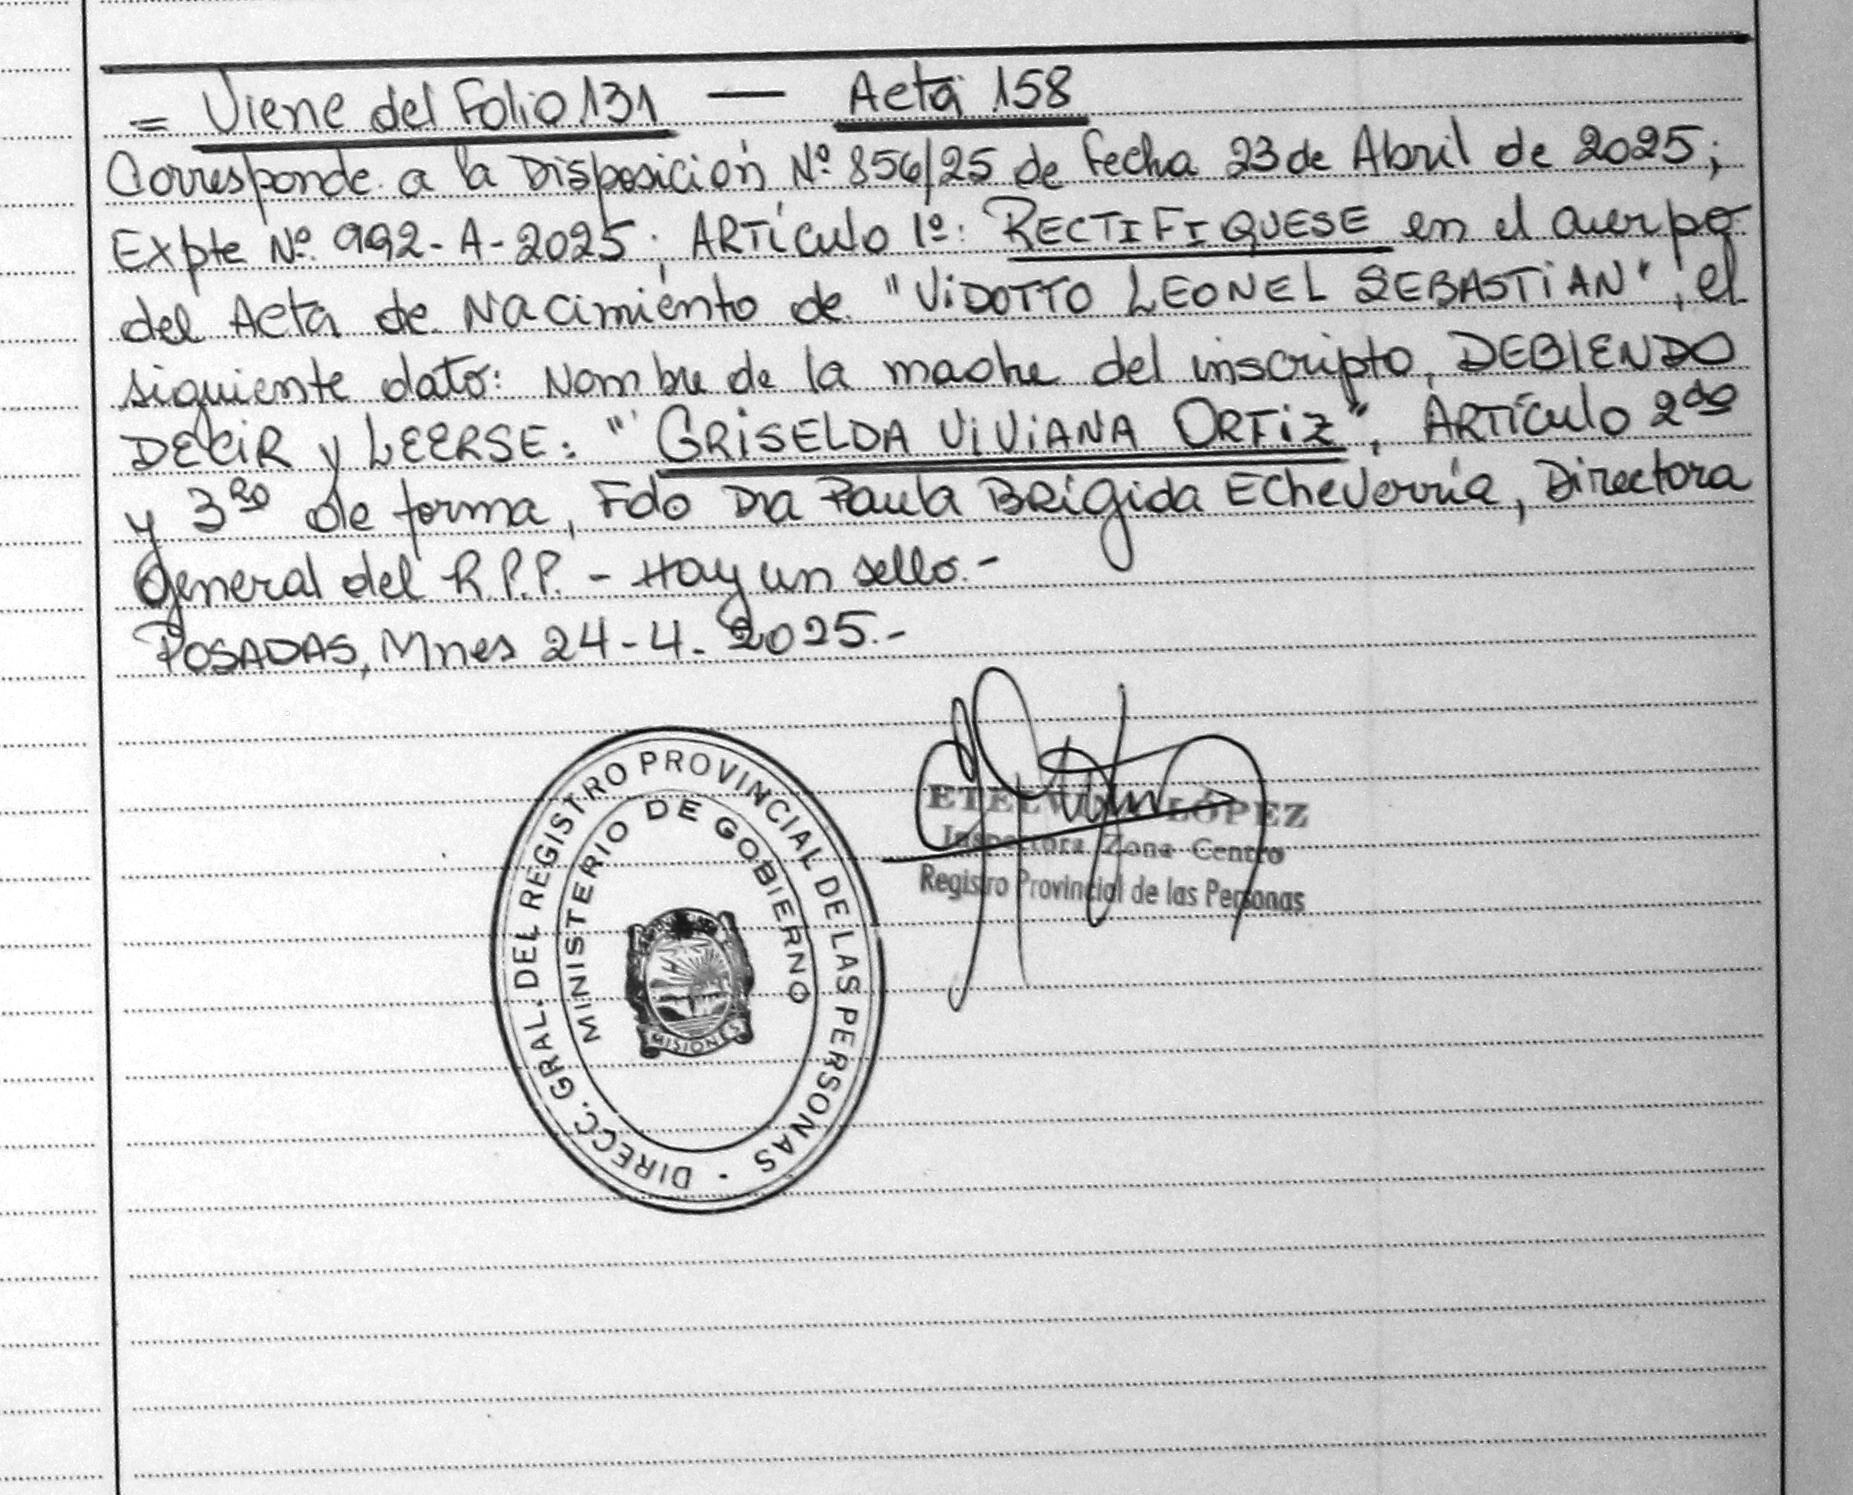 = Viene del Folio 131 — Acta 158
Corresponde a la Disposición Nº 856/25 de fecha 23 de Abril de 2025;
Expte Nº 992-A-2025; ARTÍCULO 1º: RECTIFIQUESE en el cuerpo
del Acta de Nacimiento de "VIDOTTO LEONEL SEBASTIAN", el
siguiente dato: Nombre de la madre del inscripto, DEBIENDO
DECIR y LEERSE: "GRISELDA VIVIANA ORTIZ", ARTÍCULO 2do
y 3ro de forma, Fdo Dra Paula Brígida Echeverría, Directora
General del R.P.P. - Hay un sello.-
POSADAS, Mnes 24-4-2025.-
DIRECC. GRAL. DEL REGISTRO PROVINCIAL DE LAS PERSONAS -
MINISTERIO DE GOBIERNO
MISIONES
ETELVINA LÓPEZ
Inspectora Zona Centro
Registro Provincial de las Personas